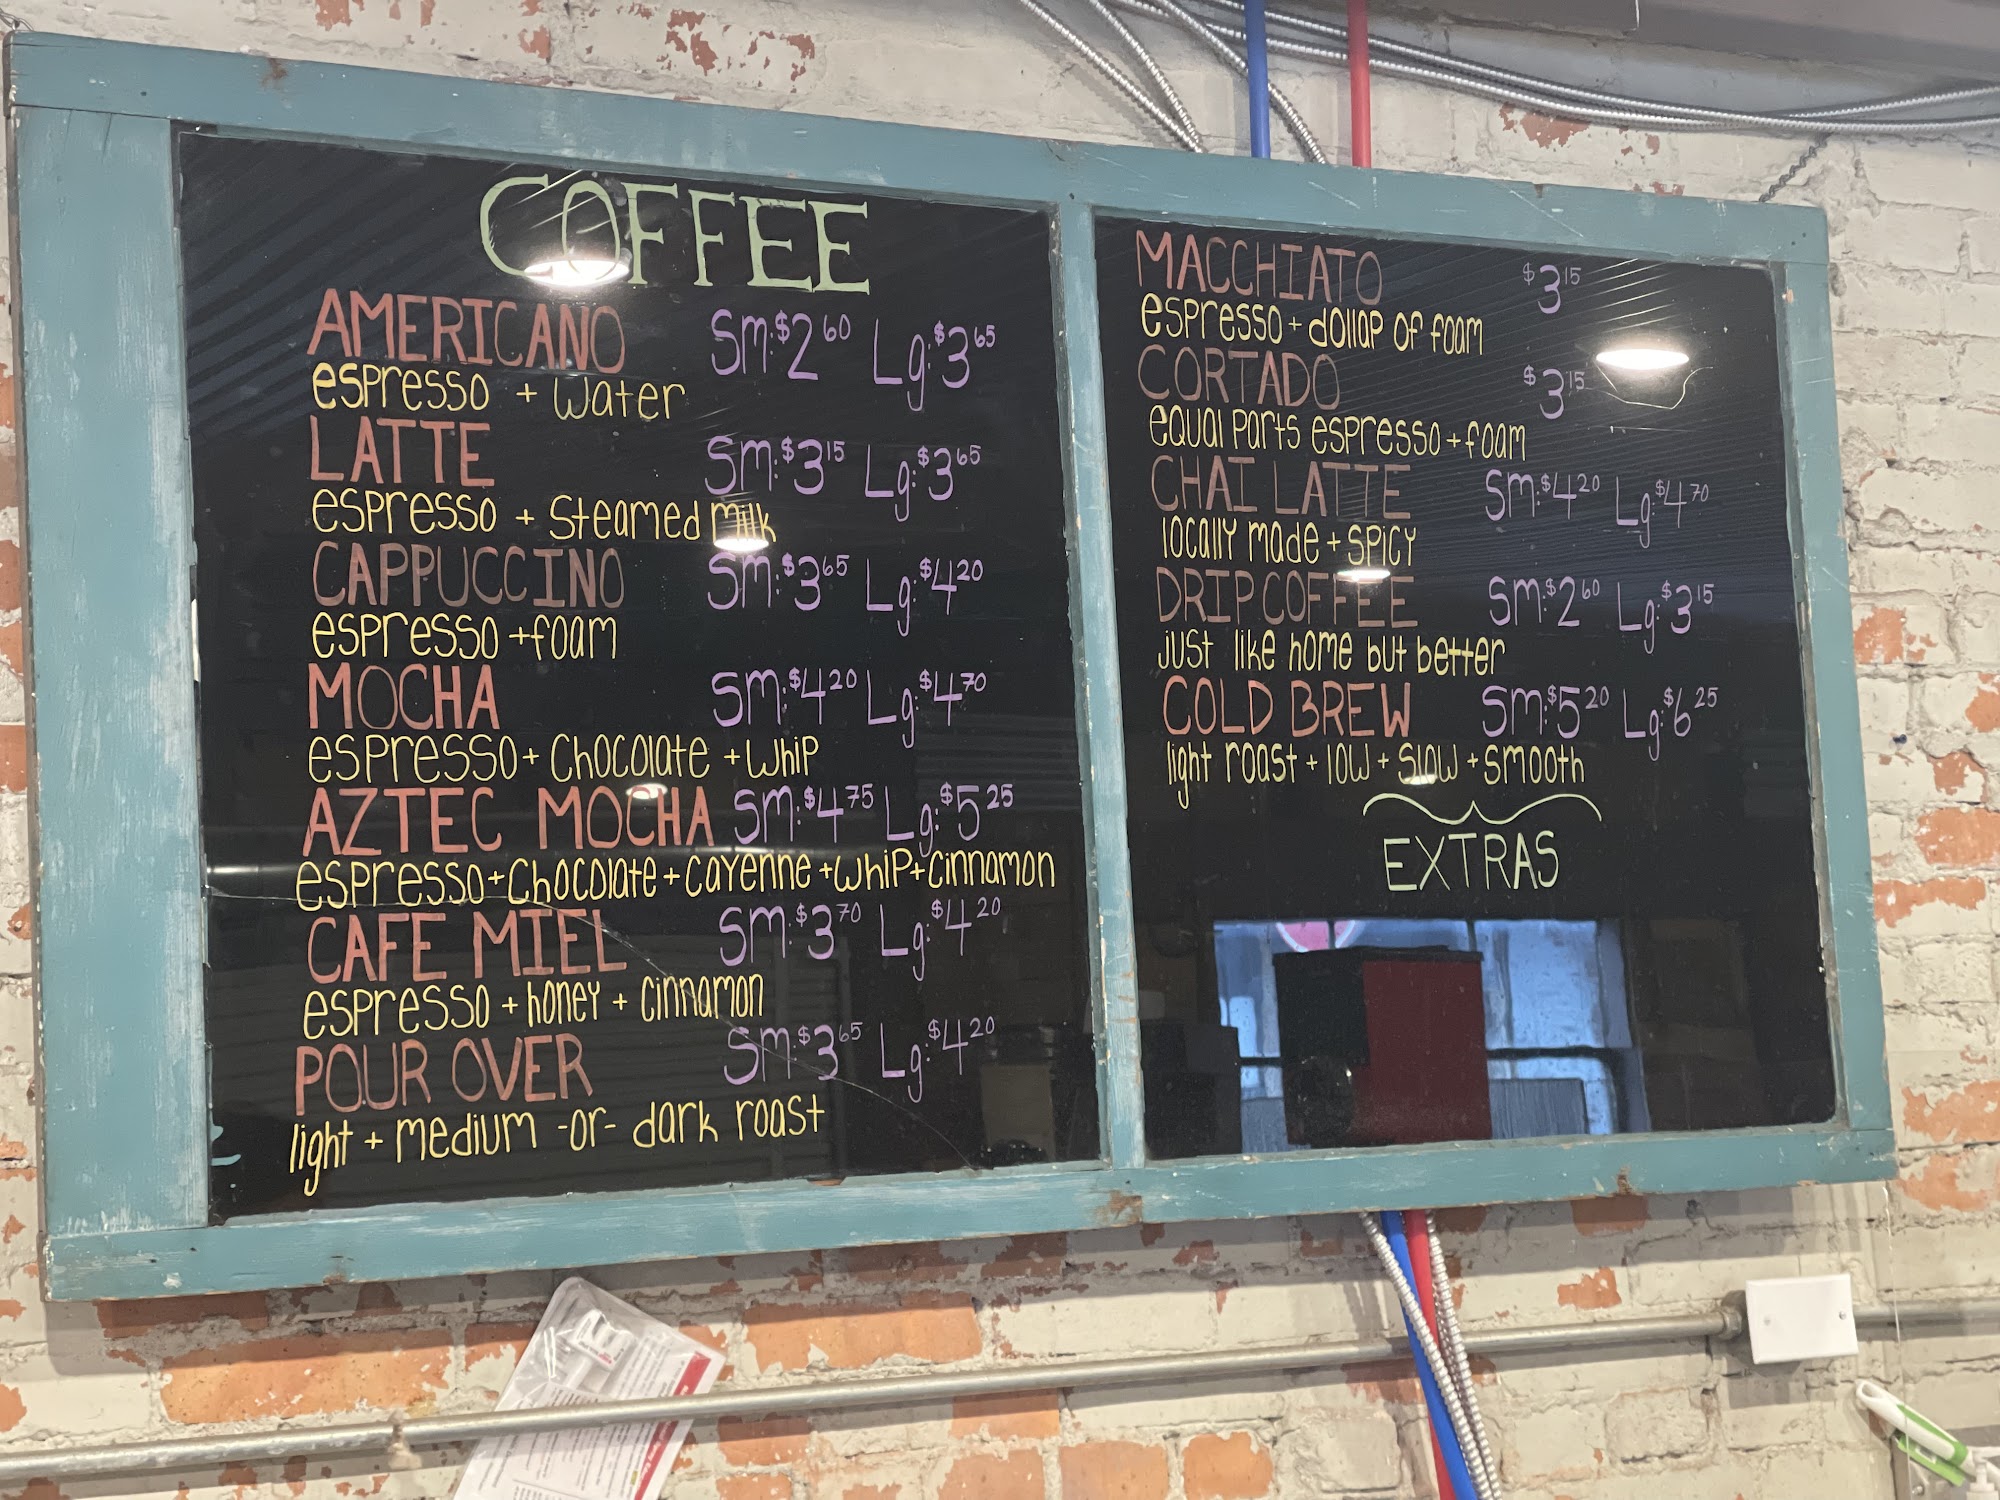 COFFEE
AMERICANO Sm: $2 60 Lg: $3 65
espresso + water
LATTE Sm: $3 15 Lg: $3 65
espresso + steamed milk
CAPPUCCINO Sm: $3 65 Lg: $4 20
espresso + foam
MOCHA Sm: $4 20 Lg: $4 70
espresso + chocolate + whip
AZTEC MOCHA Sm: $4 75 Lg: $5 25
espresso + chocolate + cayenne + whip + cinnamon
CAFE MIEL Sm: $3 70 Lg: $4 20
espresso + honey + cinnamon
POUR OVER Sm: $3 65 Lg: $4 20
light + medium -or- dark roast
MACCHIATO $3 15
espresso + dollap of foam
CORTADO $3 15
equal parts espresso + foam
CHAI LATTE Sm: $4 20 Lg: $4 70
locally made + spicy
DRIP COFFEE Sm: $2 60 Lg: $3 15
just like home but better
COLD BREW Sm: $5 20 Lg: $6 25
light roast + low + slow + smooth
EXTRAS